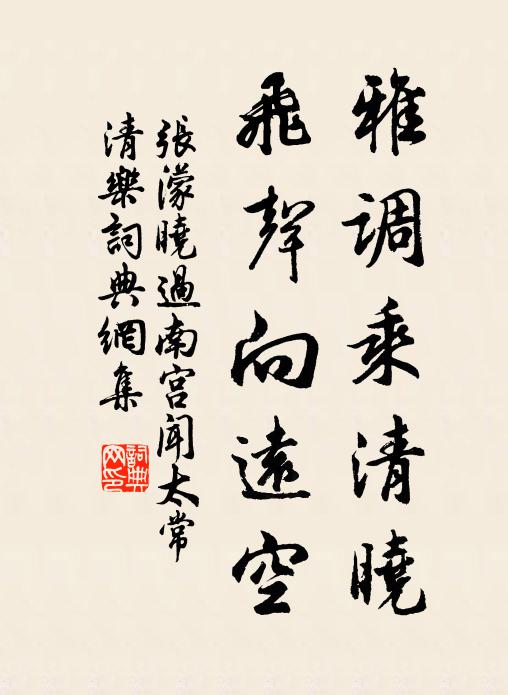 雅調乘清曉
飛聲向遠空
張濛曉過南宮聞太常
清樂詞典網集
詞典
网印